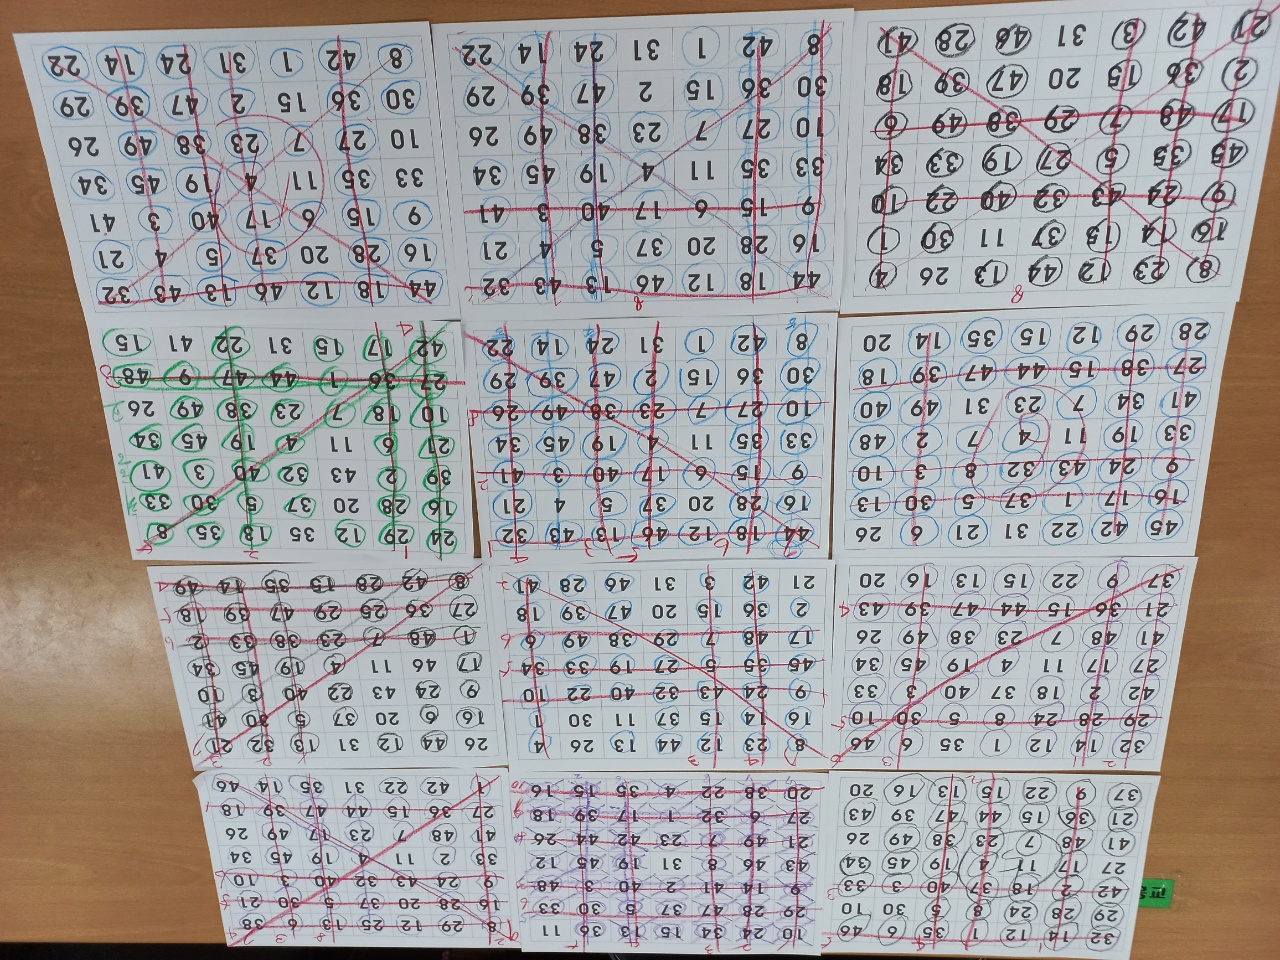 32 14 12 1 35 6 46
29 28 24 8 5 30 10
42 2 18 37 40 3 33
27 17 11 4 19 45 34
41 48 7 23 38 49 26
21 36 15 44 47 39 43
37 9 22 15 13 16 20
10 24 34 15 13 36 11
29 28 47 37 5 30 33
9 14 41 2 40 3 48
43 46 8 31 19 45 12
21 49 7 23 42 44 26
27 6 32 1 17 39 18
20 38 22 4 35 15 16
8 29 12 25 13 6 38
16 28 20 37 5 30 21
9 24 43 32 40 3 10
33 2 11 4 19 45 34
41 48 7 23 17 49 26
27 36 15 44 47 39 18
1 42 22 31 35 14 46
32 14 12 1 35 6 46
29 28 24 8 5 30 10
42 2 18 37 40 3 33
27 17 11 4 19 45 34
41 48 7 23 38 49 26
21 36 15 44 47 39 43
37 9 22 15 13 16 20
8 23 12 44 13 26 4
16 14 15 37 11 30 1
9 24 43 32 40 22 10
45 35 5 27 19 33 34
17 48 7 29 38 49 6
2 36 15 20 47 39 18
21 42 3 31 46 28 41
26 44 12 31 13 32 21
16 6 20 37 5 30 41
9 24 43 22 40 3 10
17 46 11 4 19 45 34
1 48 7 23 38 33 2
27 36 25 29 47 39 18
8 42 28 13 35 14 49
45 42 22 31 21 6 26
16 17 1 37 5 30 13
9 24 43 32 8 3 10
33 19 11 4 7 2 48
41 34 7 23 31 49 40
27 38 15 44 47 39 18
28 29 12 15 35 14 20
44 18 12 46 13 43 32
16 28 20 37 5 4 21
9 15 6 17 40 3 41
33 35 11 4 19 45 34
10 27 7 23 38 49 26
30 36 15 2 47 39 29
8 42 1 31 24 14 22
24 29 12 35 13 35 8
16 28 20 37 5 30 33
39 2 43 32 40 3 41
21 6 11 4 19 45 34
10 18 7 23 38 49 26
27 36 1 44 47 9 48
42 17 15 31 22 41 15
8 23 12 44 13 26 4
16 14 15 37 11 30 1
9 24 43 32 40 22 10
45 35 5 27 19 33 34
17 48 7 29 38 49 6
2 36 15 20 47 39 18
21 42 3 31 46 28 41
44 18 12 46 13 43 32
16 28 20 37 5 4 21
9 15 6 17 40 3 41
33 35 11 4 19 45 34
10 27 7 23 38 49 26
30 36 15 2 47 39 29
8 42 1 31 24 14 22
44 18 12 46 13 43 32
16 28 20 37 5 4 21
9 15 6 17 40 3 41
33 35 11 4 19 45 34
10 27 7 23 38 49 26
30 36 15 2 47 39 29
8 42 1 31 24 14 22